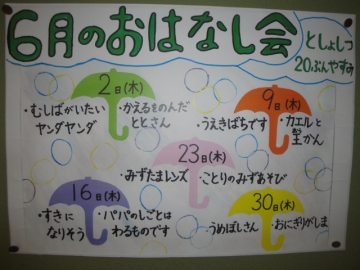 6月のおはなし会
としょしつ
20ぷんやすみ
2日(木)
・むしばがいたい
ヤンダヤンダ
・かえるをのんだ
ととさん
9日(木)
・うえきばちです
・カエルと
王かん
23日(木)
・みずたまレンズ
・ことりのみずあそび
16日(木)
・すきに
なりそう
・パパのしごとは
わるものです
30日(木)
・うめぼしさん
・おにぎりがしま